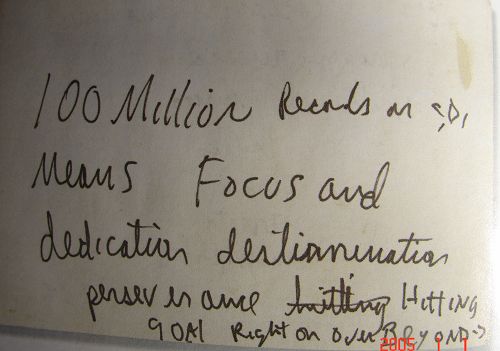 100 Million Records or
Means Focus and
dedication destiannination
perserverance hitting Hitting
GOAl Right on over BEyOND→
2005 1 1